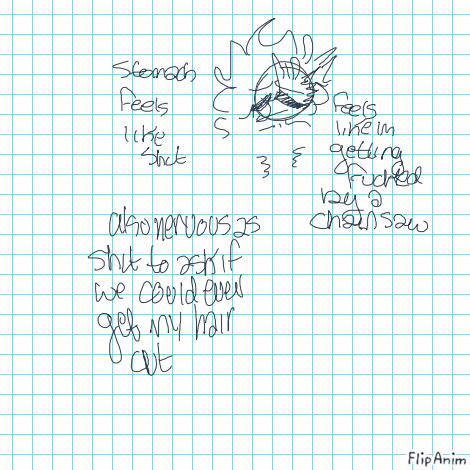 Stomach
feels
like
shit
feels
like im
getting
fucked
by a
chainsaw
also nervous as
shit to ask if
we could ever
get my hair
cut
FlipAnim